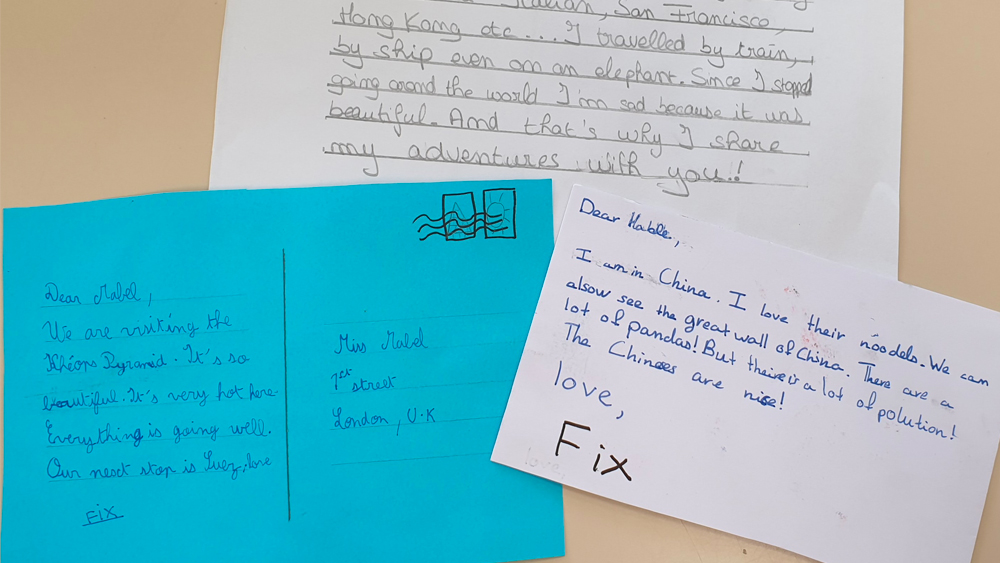 Italian, San Francisco,
Hong Kong etc... I travelled by train,
by ship even on an elephant. Since I stopped
going arond the world I'm sad because it was
beautiful. And that's why I share
my adventures with you!!
Dear Mabel,
We are visiting the
Khéops Pyramid. It's so
beautiful. It's very hot here.
Everything is going well.
Our next stop is Suez, love
FIX
Miss Mabel
1st street
London, U.K
Dear Mable,
I am in China. I love their noodels. We can
alsow see the great wall of China. There are a
lot of pandas! But theire is a lot of polution!
The Chineses are nice!
love,
Fix
love